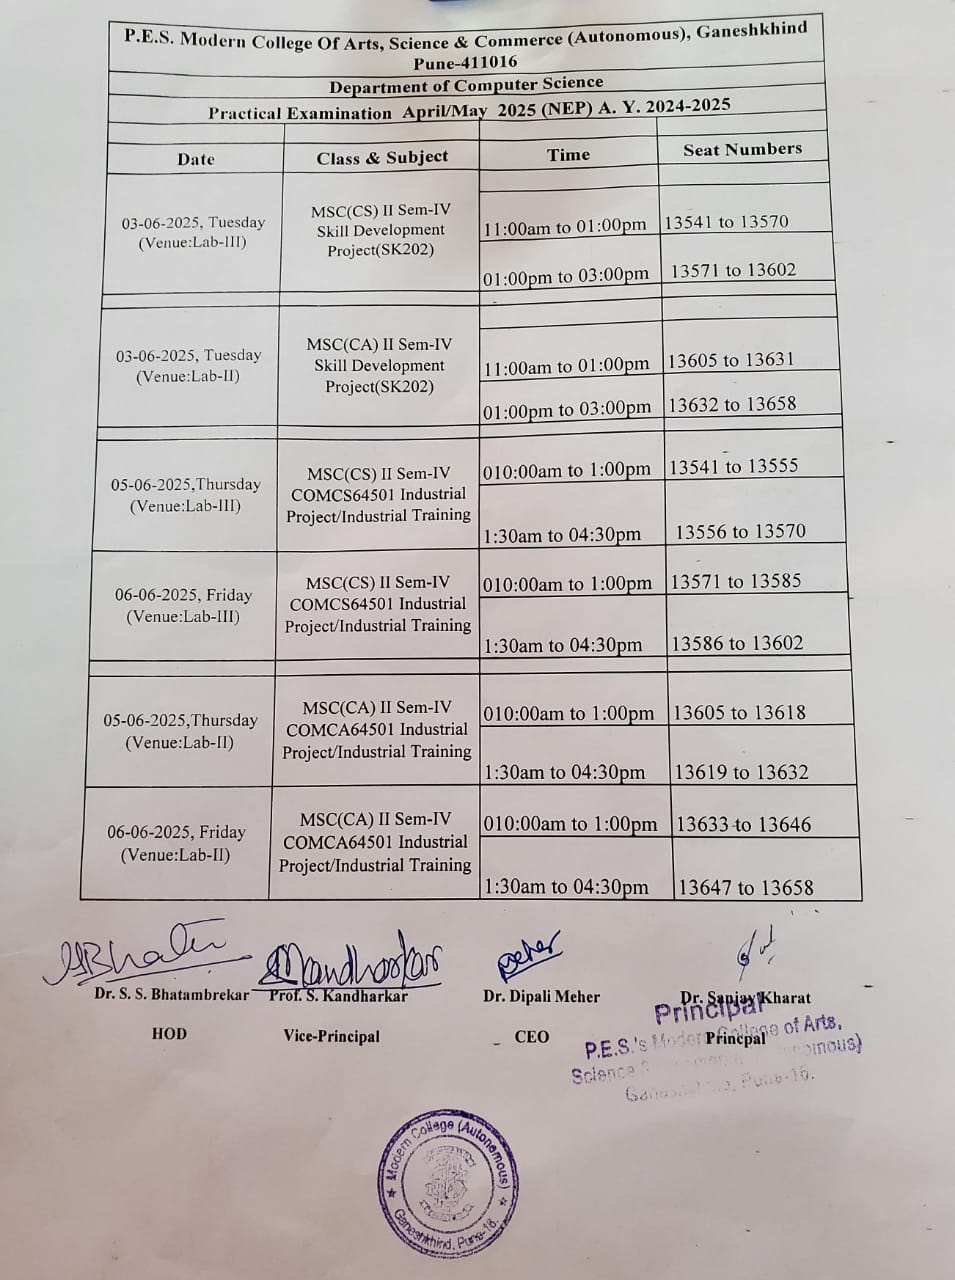 P.E.S. Modern College Of Arts, Science & Commerce (Autonomous), Ganeshkhind
Pune-411016
Department of Computer Science
Practical Examination April/May 2025 (NEP) A. Y. 2024-2025
Date Class & Subject Time Seat Numbers
03-06-2025, Tuesday
(Venue:Lab-III)
MSC(CS) II Sem-IV
Skill Development
Project(SK202)
11:00am to 01:00pm 13541 to 13570
01:00pm to 03:00pm 13571 to 13602
03-06-2025, Tuesday
(Venue:Lab-II)
MSC(CA) II Sem-IV
Skill Development
Project(SK202)
11:00am to 01:00pm 13605 to 13631
01:00pm to 03:00pm 13632 to 13658
05-06-2025,Thursday
(Venue:Lab-III)
MSC(CS) II Sem-IV
COMCS64501 Industrial
Project/Industrial Training
010:00am to 1:00pm 13541 to 13555
1:30am to 04:30pm 13556 to 13570
06-06-2025, Friday
(Venue:Lab-III)
MSC(CS) II Sem-IV
COMCS64501 Industrial
Project/Industrial Training
010:00am to 1:00pm 13571 to 13585
1:30am to 04:30pm 13586 to 13602
05-06-2025,Thursday
(Venue:Lab-II)
MSC(CA) II Sem-IV
COMCA64501 Industrial
Project/Industrial Training
010:00am to 1:00pm 13605 to 13618
1:30am to 04:30pm 13619 to 13632
06-06-2025, Friday
(Venue:Lab-II)
MSC(CA) II Sem-IV
COMCA64501 Industrial
Project/Industrial Training
010:00am to 1:00pm 13633 to 13646
1:30am to 04:30pm 13647 to 13658
Dr. S. S. Bhatambrekar Prof. S. Kandharkar Dr. Dipali Meher Dr. Sanjay Kharat
HOD Vice-Principal CEO Princpal
Principal
P.E.S.'s Modern College of Arts,
Science
Pune-16.
Modern College (Autonomous)
Ganeshkhind, Pune-16.